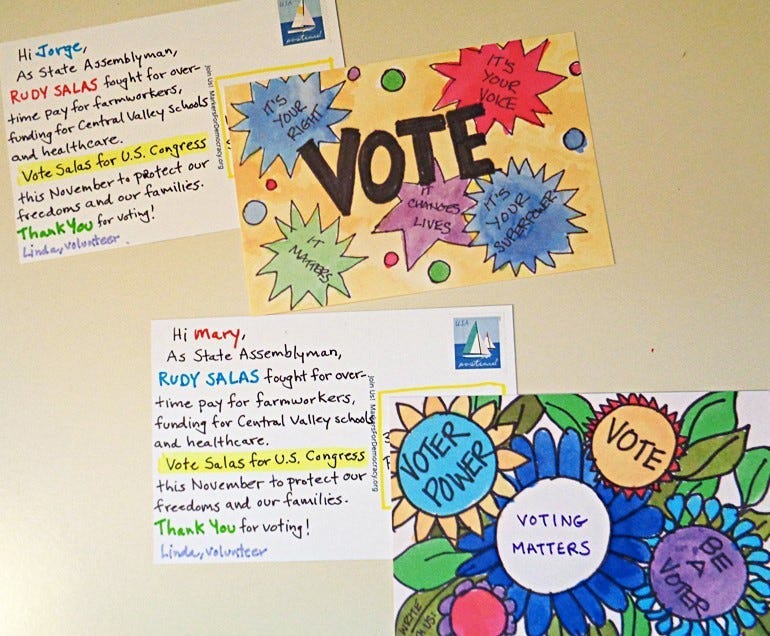 Hi Jorge,
As State Assemblyman,
RUDY SALAS fought for over-
time pay for farmworkers,
funding for Central Valley Schools
and healthcare.
Vote Salas for U.S. Congress
this November to protect our
freedoms and our families.
Thank You for voting!
Linda, volunteer.
Join Us! MarkersForDemocracy.org
USA
postcard
IT'S
YOUR
RIGHT
IT'S
YOUR
VOICE
VOTE
IT
CHANGES
LIVES
IT'S
YOUR
SUPERPOWER
IT
MATTERS
Hi Mary,
As State Assemblyman,
RUDY SALAS fought for over-
time pay for farmworkers,
funding for Central Valley schools
and healthcare.
Vote Salas for U.S. Congress
this November to protect our
freedoms and our families.
Thank You for voting!
Linda, volunteer
Join Us! MarkersForDemocracy.org
USA
postcard
VOTER
POWER
VOTE
VOTING
MATTERS
BE
A
VOTER
WRITE
US!